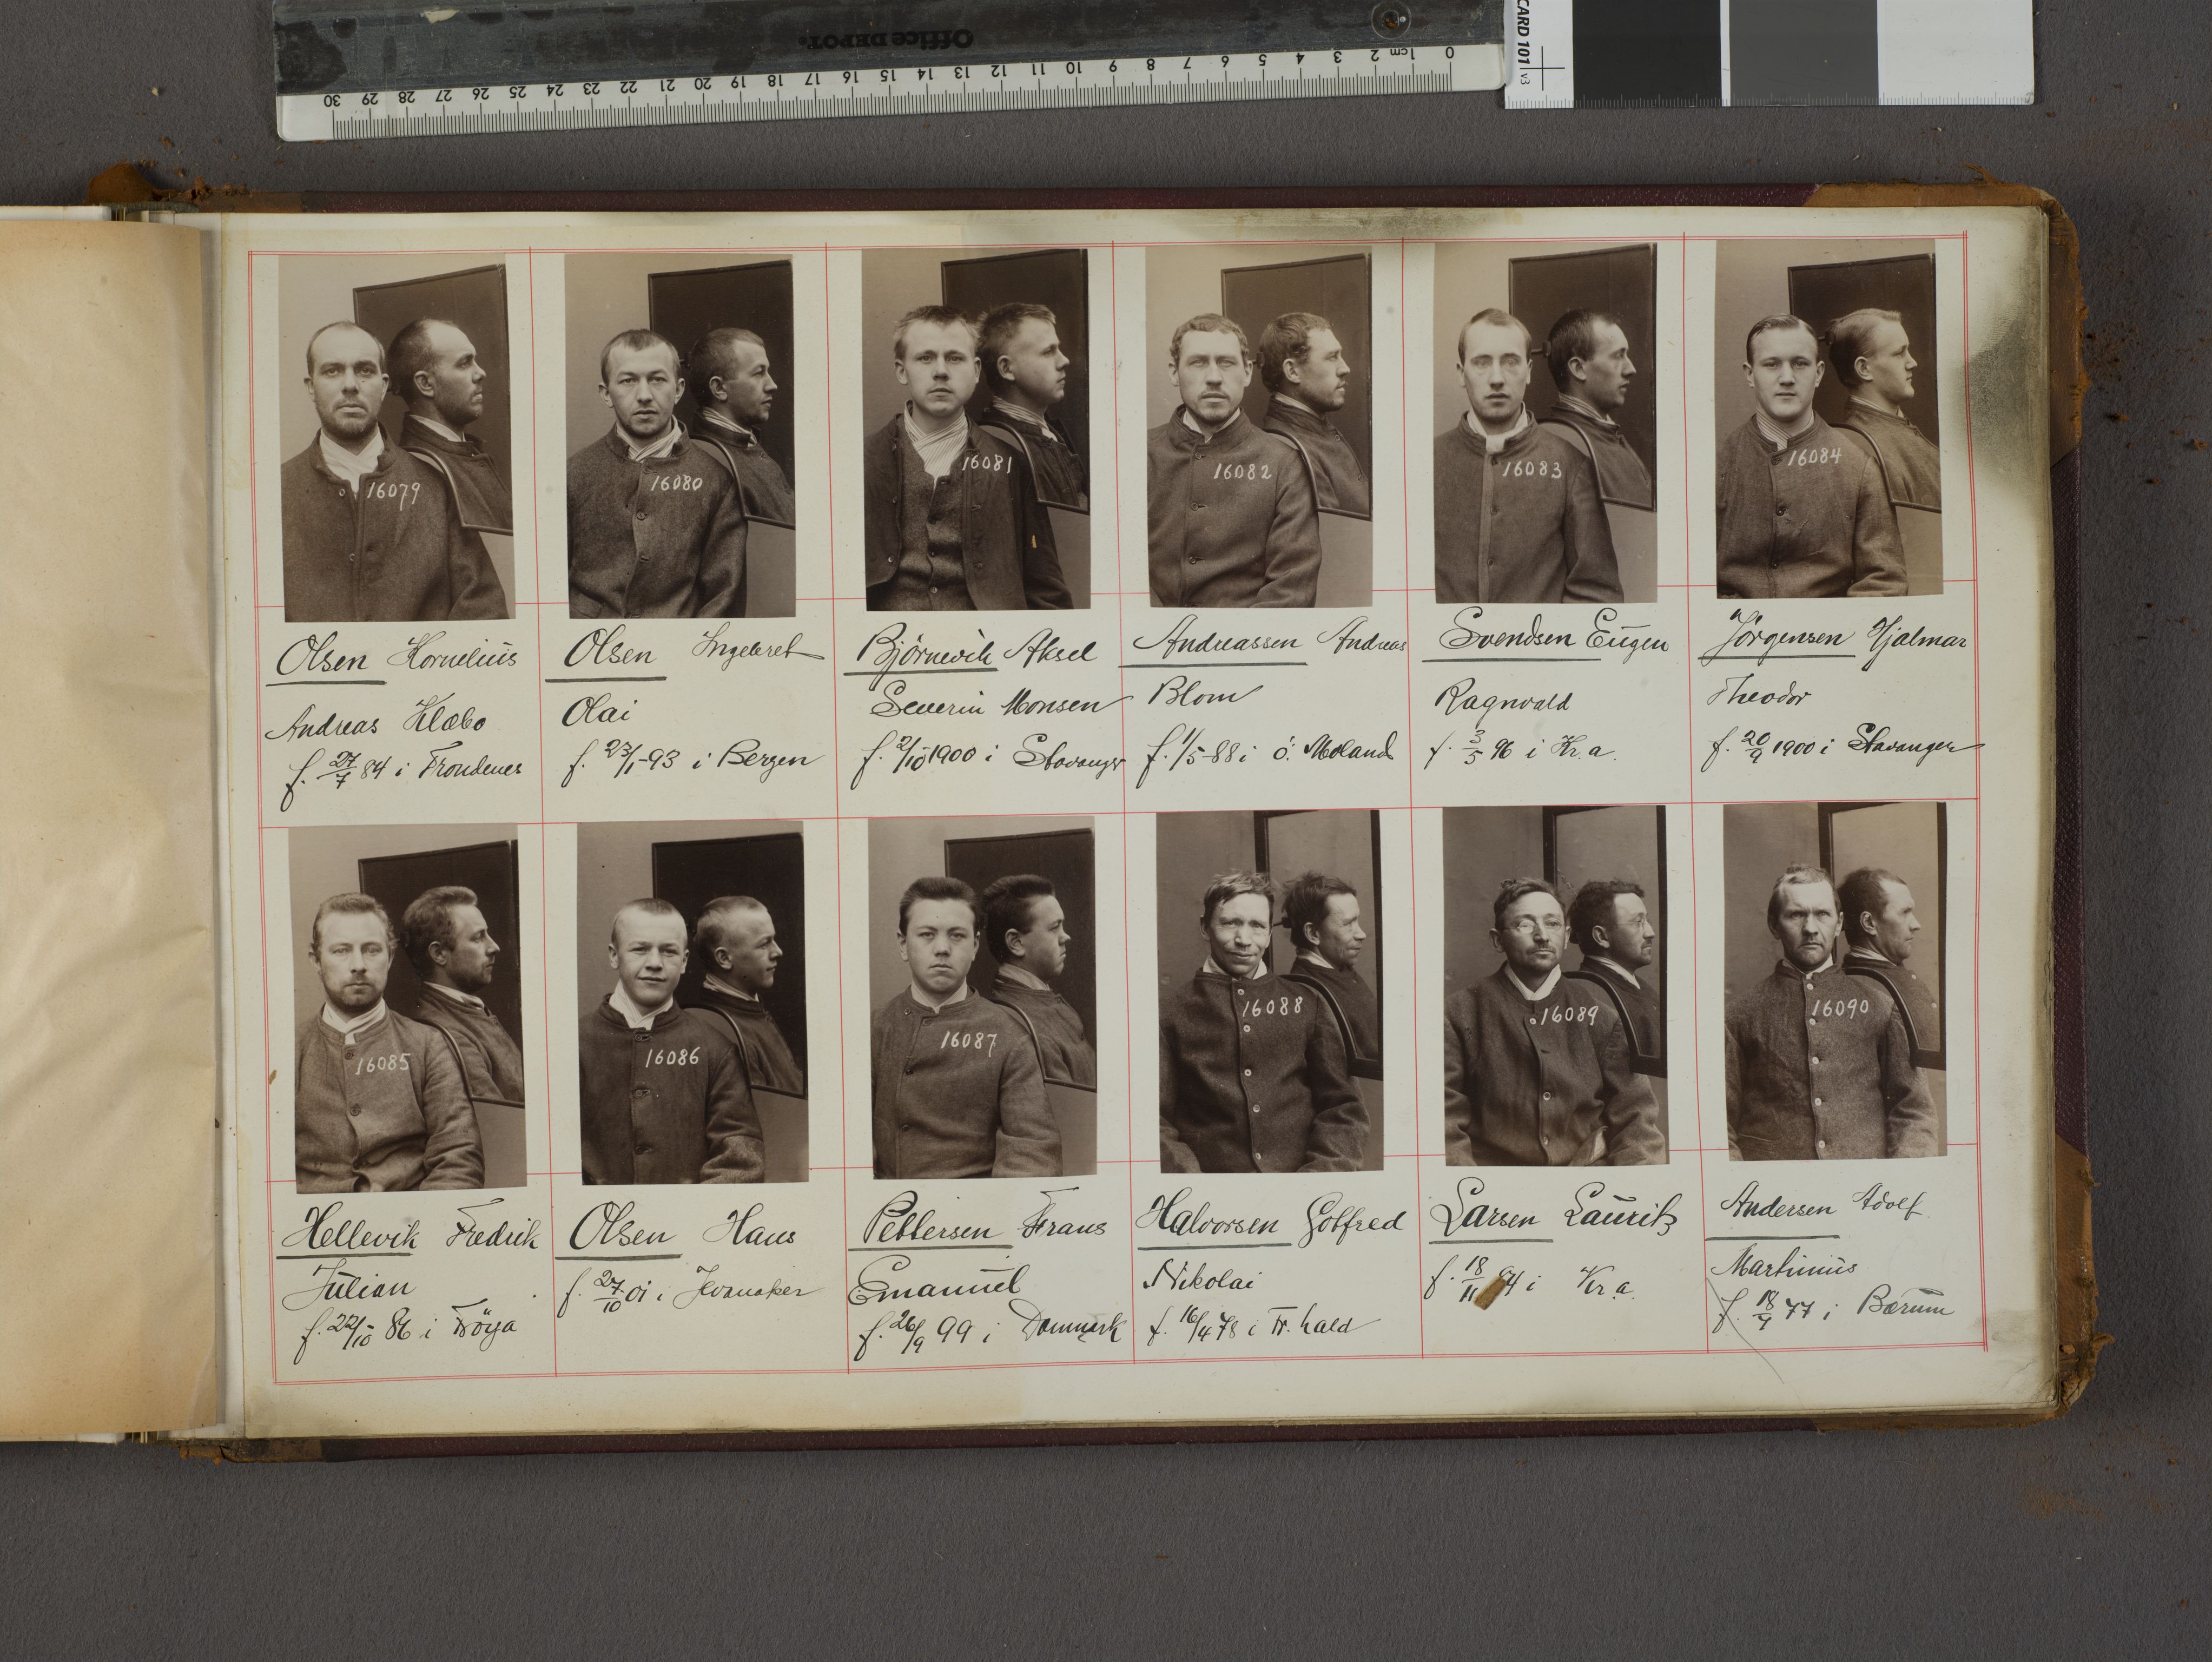 Office DEPOT.
0 1cm 2 3 4 5 6 7 8 9 10 11 12 13 14 15 16 17 18 19 20 21 22 23 24 25 26 27 28 29 30
CARD 101 v3
16079
16080
16081
16082
16083
16084
Olsen Kornelius
Andreas Klæbo
f. 27/7 84 i Trondenes
Olsen Ingebret
Olai
f. 23/1-93 i Bergen
Björnevik Aksel
Severin Monsen
f. 2/10-1900 i Stavanger
Andreassen Andreas
Blom
f. 1/5-88 i ö. Moland
Svendsen Eugen
Ragnvald
f. 3/5 96 i Kr.a.
Jörgensen Hjalmar
Theodor
f. 20/9 1900 i Stavanger
16085
16086
16087
16088
16089
16090
Hellevik Fredrik
Julian
f. 22/10-86 i Fröya
Olsen Hans
f. 27/10 01 i Jevnaker
Pettersen Frans
Emanuel
f. 26/9 99 i Danmark
Halvorsen Gotfred
Nikolai
f. 16/4 78 i Fr.hald
Larsen Lauritz
f. 18/11 i Kr.a.
Andersen Adolf
Martinius
f. 77 i Bærum